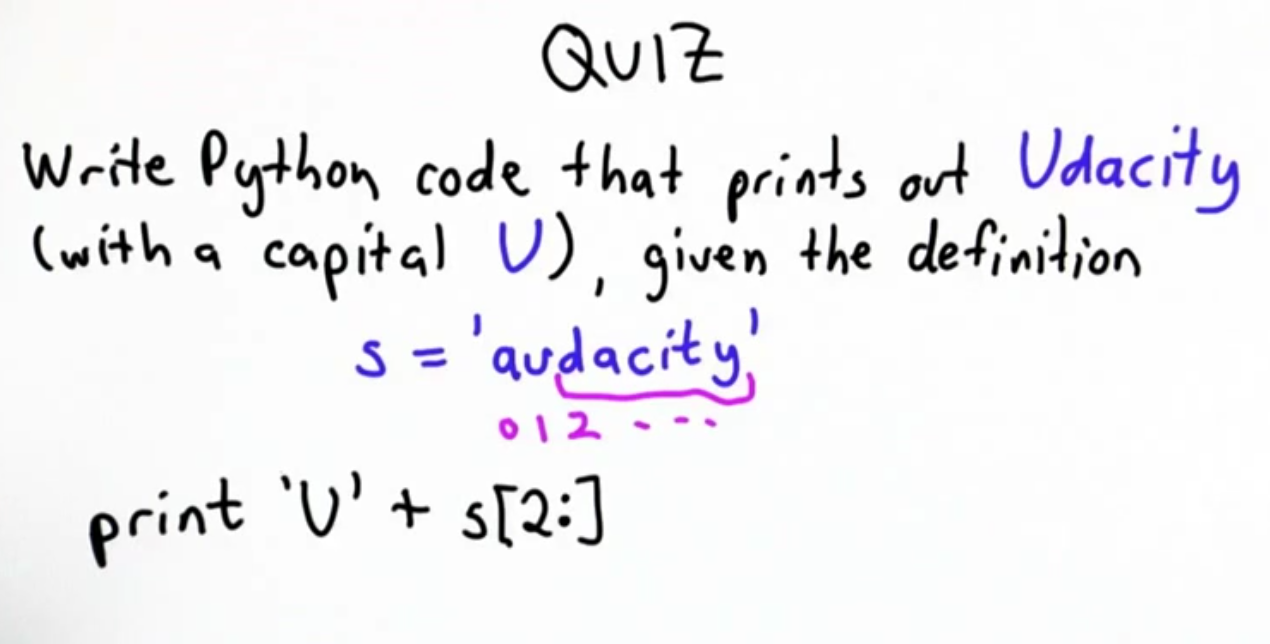 QUIZ
Write Python code that prints out Udacity
(with a capital U), given the definition
s = 'audacity'
0 1 2 - - -
print 'U' + s[2:]